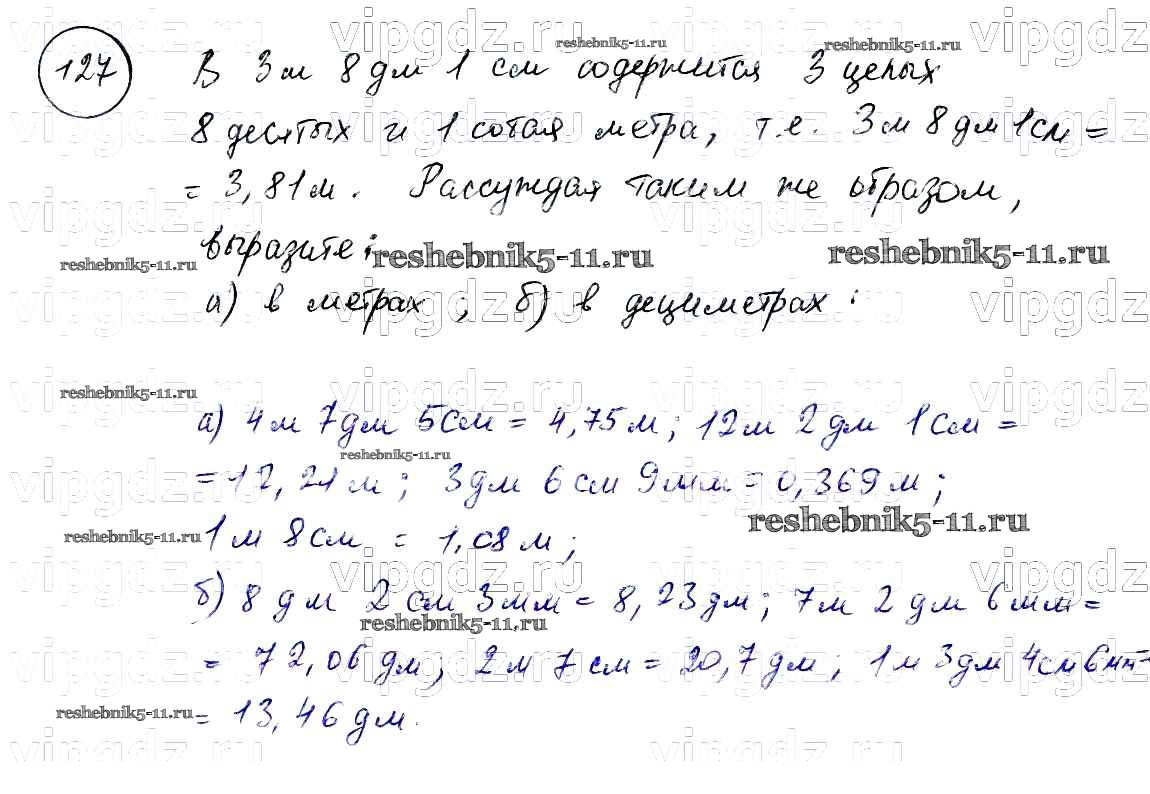 127 В 3 м 8 дм 1 см содержится 3 целых
8 десятых и 1 сотая метра, т.е. 3 м 8 дм 1 см =
= 3,81 м. Рассуждая таким же образом,
выразите:
а) в метрах; б) в дециметрах:
а) 4 м 7 дм 5 см = 4,75 м; 12 м 2 дм 1 см =
= 12,21 м; 3 дм 6 см 9 мм = 0,369 м;
1 м 8 см = 1,08 м;
б) 8 дм 2 см 3 мм = 8,23 дм; 7 м 2 дм 6 мм =
= 72,06 дм; 2 м 7 см = 20,7 дм; 1 м 3 дм 4 см 6 мм =
= 13,46 дм.
vipgdz.ru
reshebnik5-11.ru